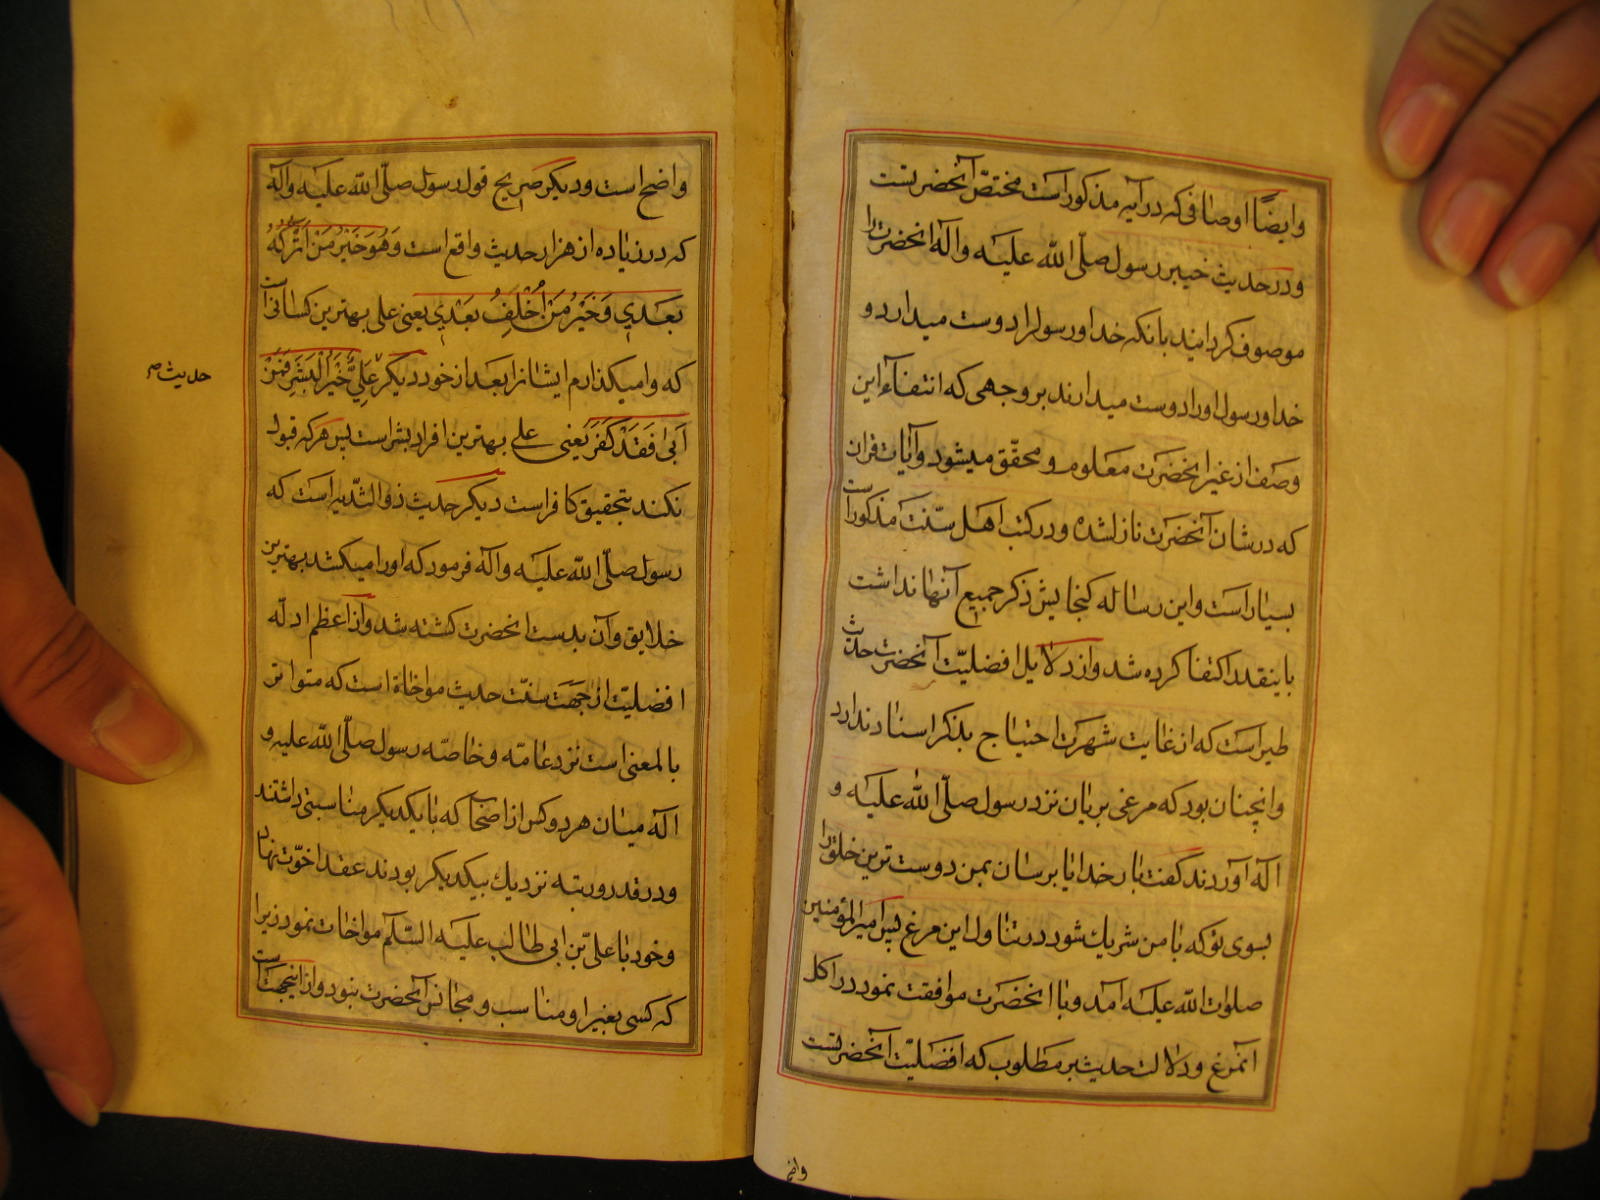 وایضًا اوصافی که در آیه مذکور است مختصّ آنحضرتست
ودر حدیث خیبر رسول صلّی الله علیه وآله آنحضرت را
موصوف کردانید بانکه خدا ورسول را دوست میدارد و
خدا ورسول اورا دوست میدارند بر وجهی که انتفاء این
وصف از غیر آنحضرت معلوم و محقّق میشود وآیات قران
که در شان آنحضرت نازلشده و در کتب اهل سنّت مذکور است
بسیار است واین رساله کنجایش ذکر جمیع آنها نداشت
باینقدر اکتفا کرده شد واز دلایل افضلیّت آنحضرت حدیث
طیر است که از غایت شهرت احتیاج بذکر اسناد ندارد
وانچنان بود که مرغی بریان نزد رسول صلّی الله علیه و
اله آوردند کفت بار خدایا برسان بمن دوست ترین خلق را
بسوی تو که با من شریك شود در تناول این مرغ پس امیرالمؤمنین
صلوات الله علیه آمد وبا انحضرت موافقت نمود در اکل
آنمرغ ودلالت حدیث بر مطلوب که افضلیّت آنحضرتست
واضح
واضح است ودیکر صریح قول رسول صلّی الله علیه وآله
که در زیاده از هزار حدیث واقع است وَهُوَ خَیْرُ مَنْ اَتْرُکُهُ
بَعْدی وَخَیْرُ مَنْ اُخْلِفُ بَعْدی یعنی علی بهترین کسانی است
که وامیکذارم ایشانرا بعد از خود دیکر عَلِیٌّ خَیْرُ الْبَشَرِ فَمَنْ
اَبی فَقَدْ کَفَرَ یعنی علی بهترین افراد بشر است پس هر که قبول
نکند بتحقیق کافر است دیکر حدیث ذو الثّدیه است که
رسول صلّی الله علیه وآله فرمود که اورا میکشد بهترین
خلایق وآن بدست انحضرت کشته شد واز اعظم ادلّه
افضلیّت از جهت سنّت حدیث مواخاة است که متواتر
بالمعنی است نزد عامّه وخاصّه رسول صلّی الله علیه و
اله میان هر دو کس از اصحاب که با یکدیکر مناسبتی داشتند
ودر قدر ورتبه نزدیك بیکدیکر بودند عقد اخوّت نهاد
وخود با علیّ بن ابی طالب علیه السّلم مواخات نمود زیرا
که کسی بغیر او مناسب و مجانس آنحضرت نبود واز اینجهت است
حدیث ص